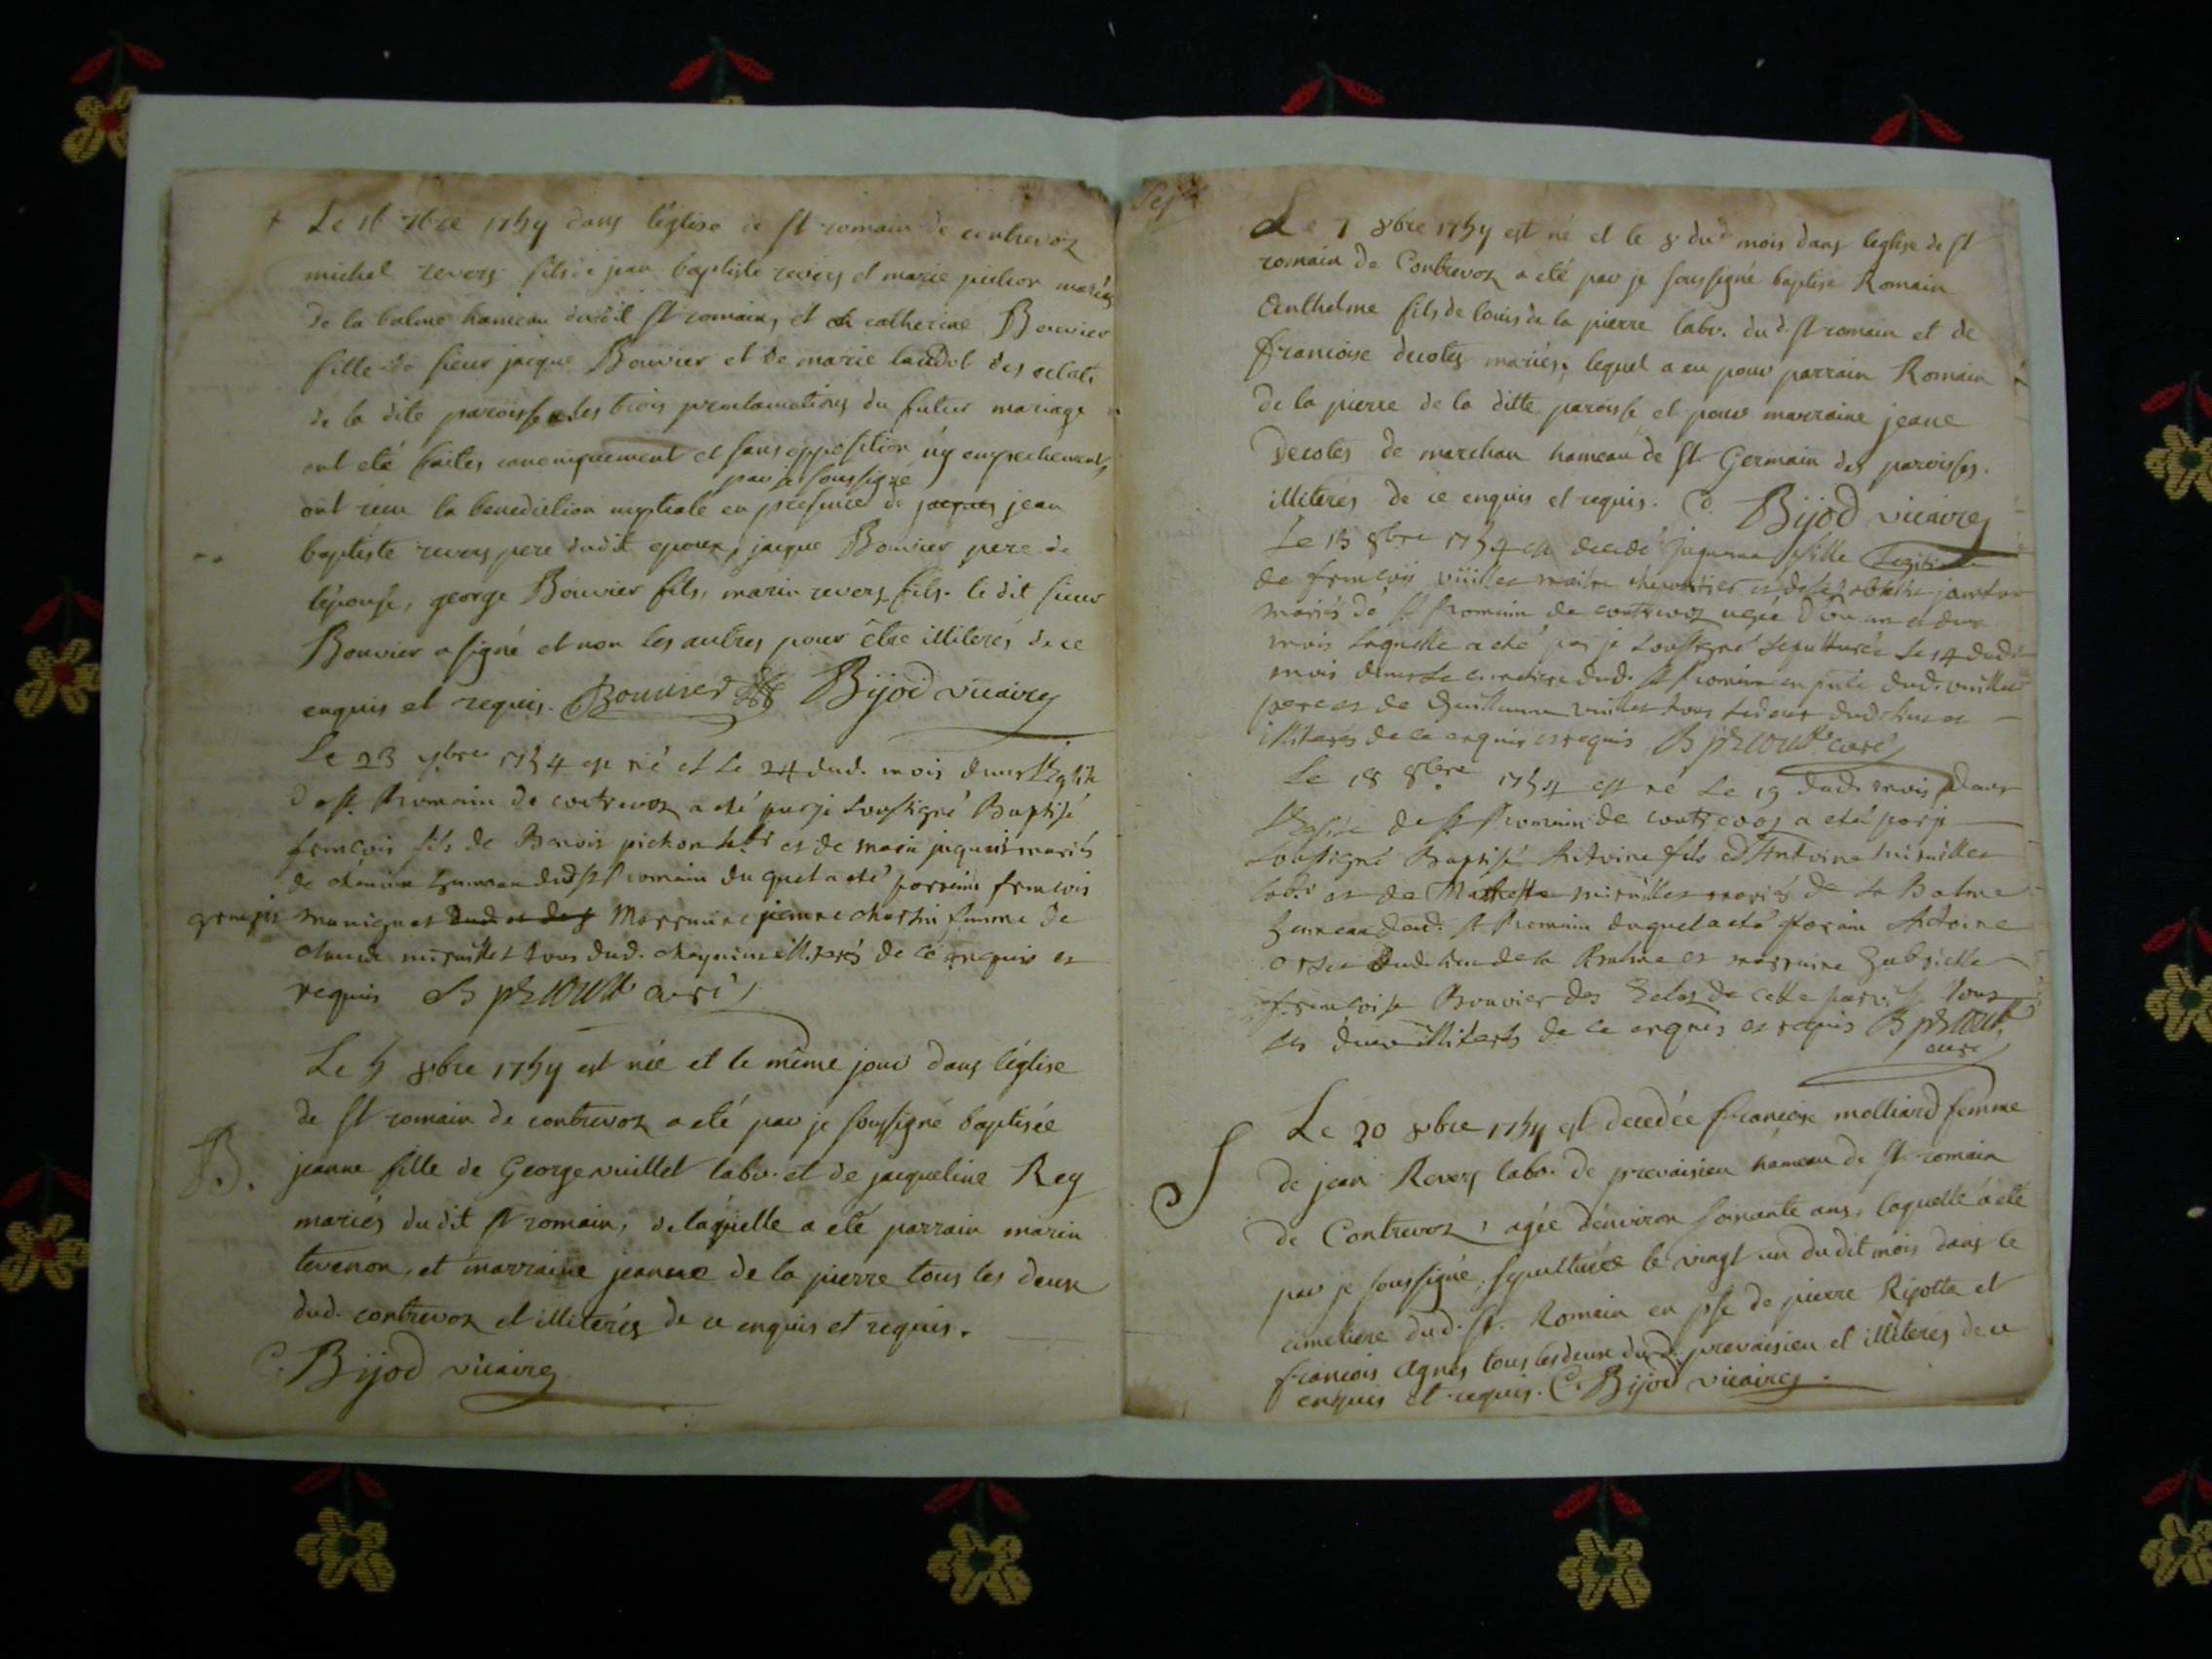 Le 16 7bre 1754 dans l'église de st romain de contrevoz
michel revers fils de jean baptiste revers et marie pichon mariés
de la balme hameau dudit st romain, et catherine Bouvier
fille de sieur jacque Bouvier et de marie des
de la dite paroisse les trois proclamations du futur mariage
ont eté faites canoniquement et sans opposition ny empechements
par je soussigné
ont recu la benediction nuptiale en presence de jacques jean
baptiste revers pere dudit epoux, jacque Bouvier pere de
l'epouse, george Bouvier fils, marin revers fils. le dit sieur
Bouvier a signé et non les autres pour être illiterés de ce
enquis et requis. Bouvier Bijod vicaire
Le 23 7bre 1754 est né et Le 24 dud. mois dans l'Eglise
de st. Romain de contrevoz a eté par je soussigné Baptisé
françois fils de Benoit pichon labr et de marie mariés
de hameau dud st romain duquel a eté parrain francois
manignet dud Marraine jeanne femme de
claude tous dud. illiterés de ce enquis et
requis B curé
Le 5 8bre 1754 est née et le même jour dans l'église
de st romain de contrevoz a eté par je soussigné baptisée
B. jeanne fille de George vuillet labr. et de jacqueline Rey
mariés dudit st romain, de laquelle a eté parrain marin
tevenon, et marraine jeanne de la pierre tous les deux
dud. contrevoz et illiterés de ce enquis et requis.
C. Bijod vicaire
Le 7 8bre 1754 est né et le 8 dud mois dans l'eglise de st
romain de Contrevoz a eté par je soussigné baptisé Romain
Anthelme fils de louis de la pierre labr. dud. st romain et de
francoise decotes mariés, lequel a eu pour parrain Romain
de la pierre de la ditte paroisse et pour marraine jeane
Decotes de marchan hameau de st Germain des paroisses.
illiterés de ce enquis et requis. C. Bijod vicaire
Le 13 8bre 1754 est decedé fille
de françois vuillet maitre et de
mariés de st Romain de contrevoz agée d'un an et deux
mois laquelle a eté par je soussigné sepulturée le 14 dud.
mois dans le cimetiere dud. st Romain en dud. vuillet
pere et de Guillaume vuillet tous deux dud. lieu et
illiterés de ce enquis et requis B curé
Le 18 8bre 1754 est né Le 19 dud. mois dans
l'Eglise de st Romain de contrevoz a eté par je
soussigné Baptisé Antoine fils d'Antoine
labr et de mariés de la Balme
hameau dud. st Romain duquel a eté parain Antoine
dud. lieu de la Balme et marraine Gabrielle
françoise Bouvier des de cette paroisse tous
les deux illiterés de ce enquis et requis B
curé
S Le 20 8bre 1754 est decedée francoise molliard femme
de jean Revers labr. de prevaisieu hameau de st romain
de Contrevoz, agée d'environ soixante ans, laquelle a eté
par je soussigné, sepulturée le vingt un dudit mois dans le
cimetiere dud. st. Romain en pse de pierre Rigotta et
francois Agnès tous les deux dud. prevaisieu et illiteres de ce
enquis et requis. C. Bijod vicaire.